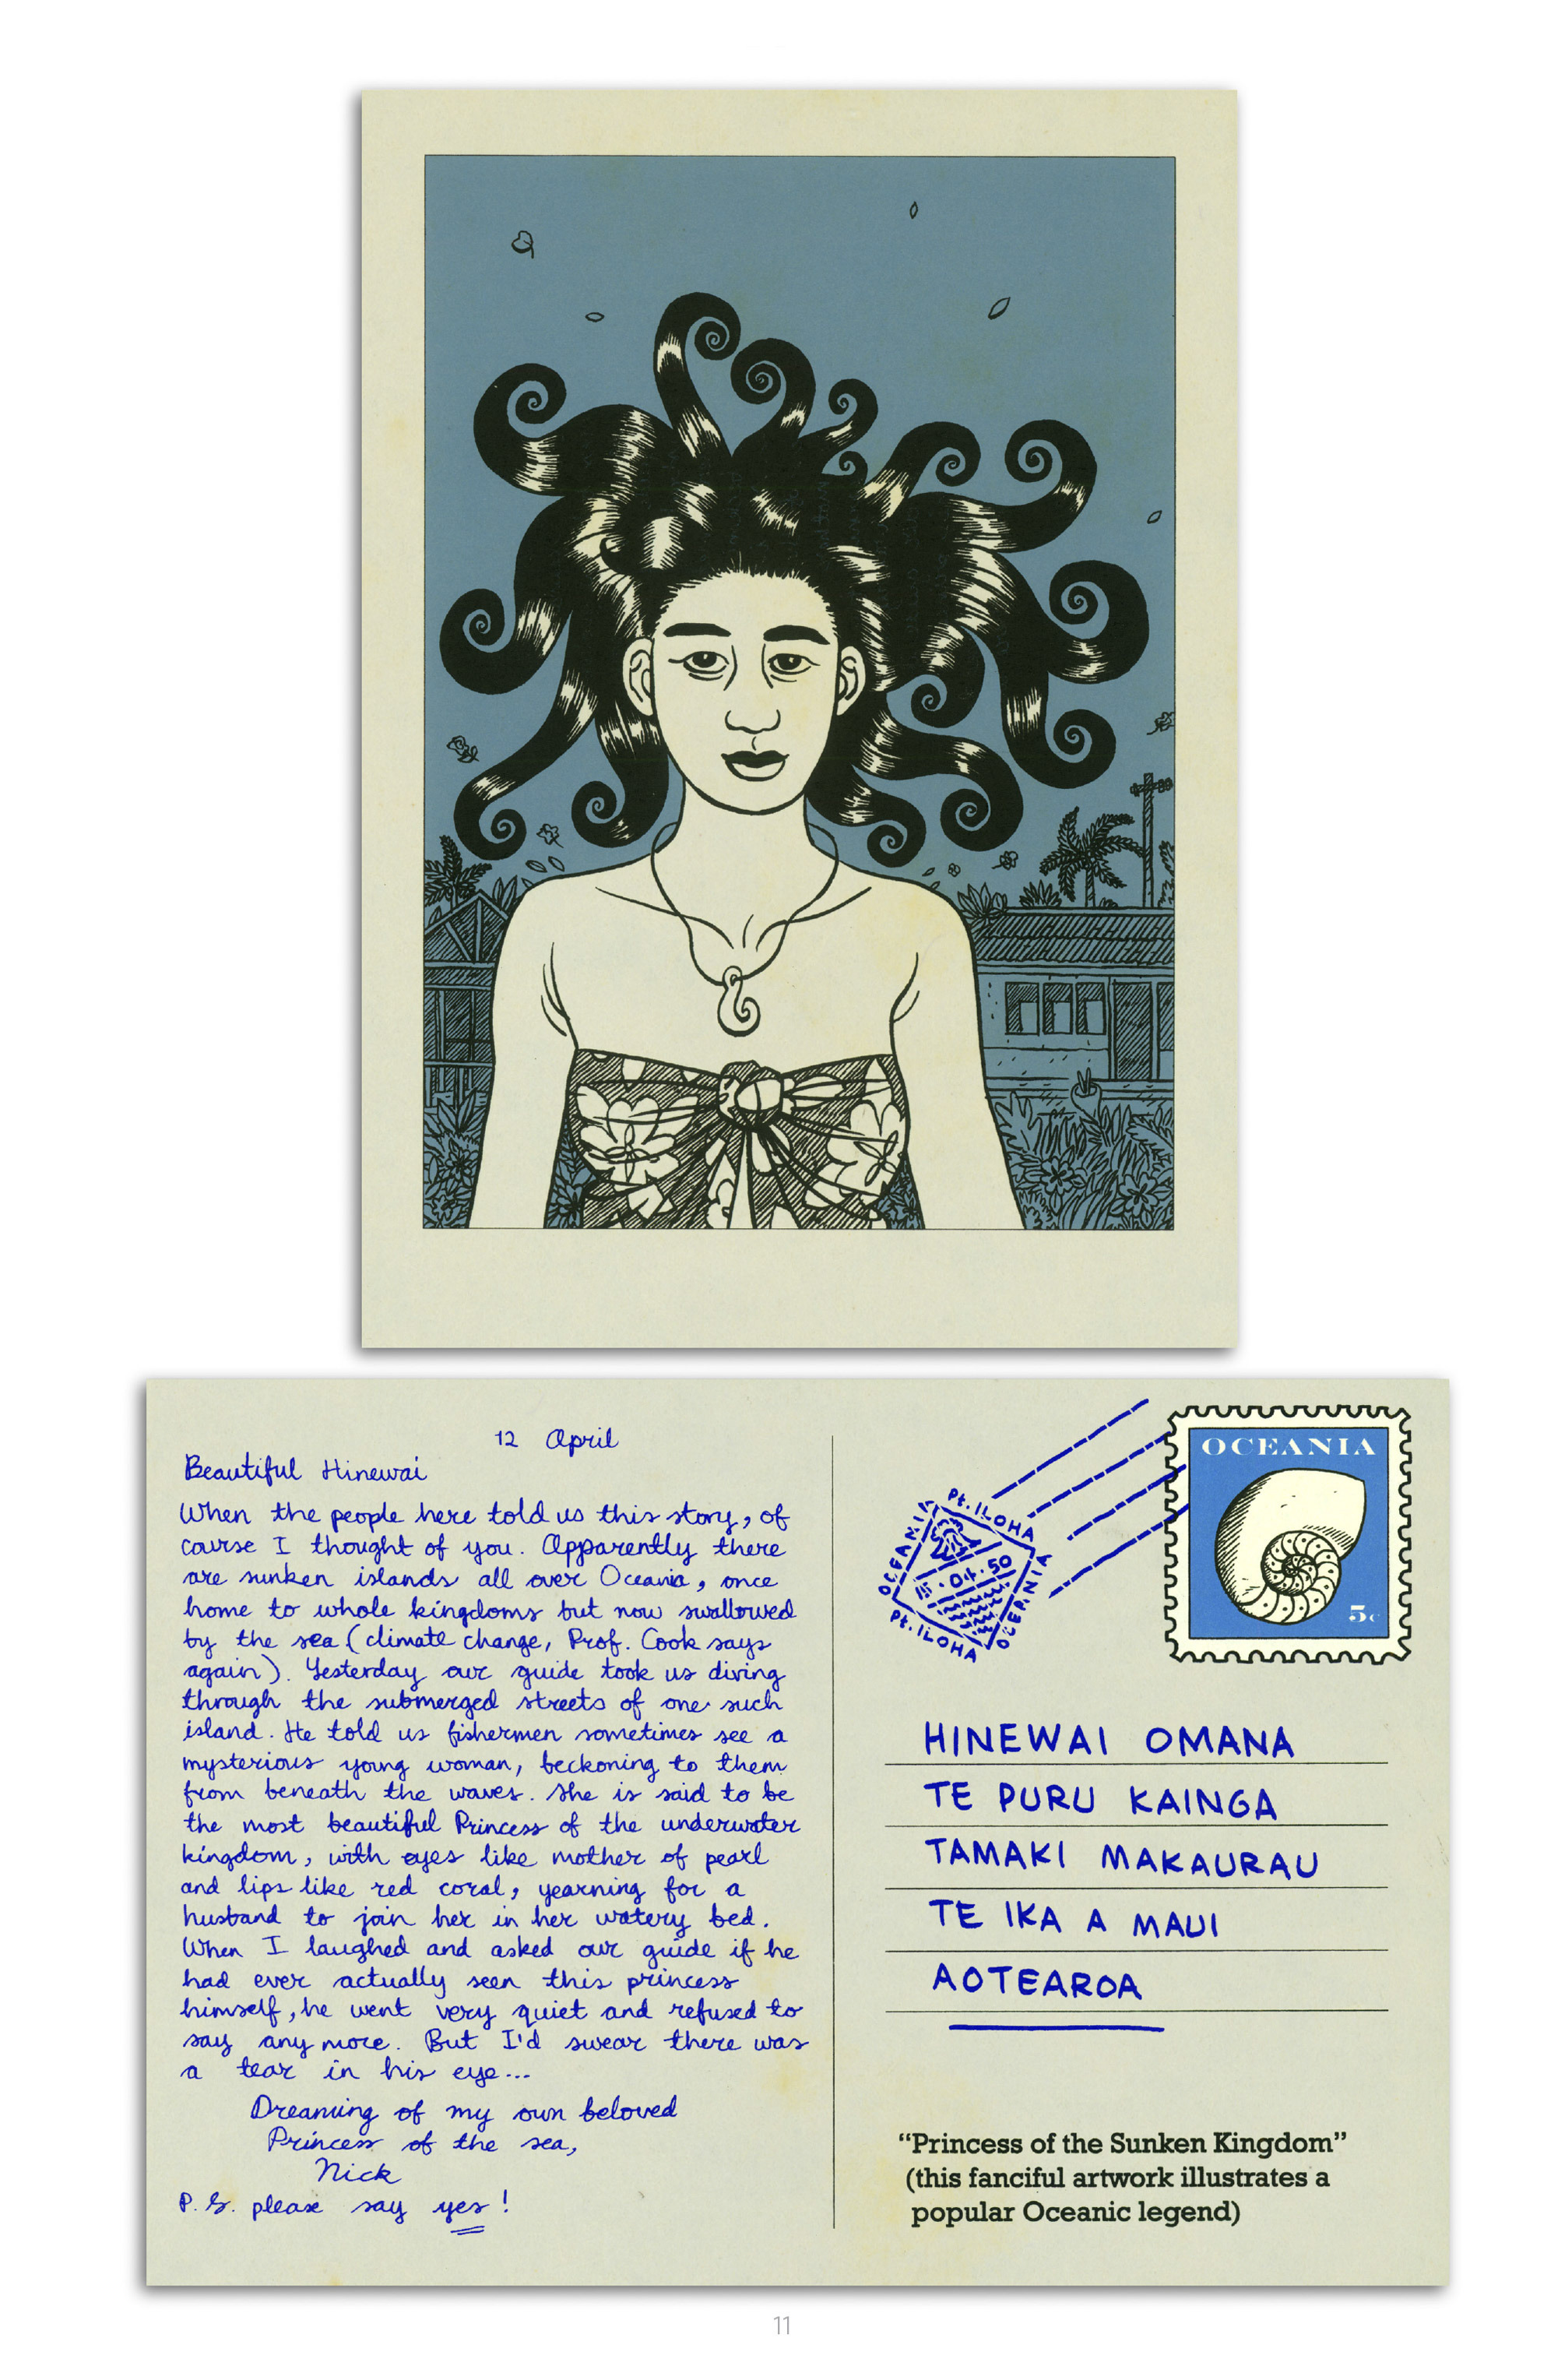 12 April
Beautiful Hinewai
When the people here told us this story, of
course I thought of you. Apparently there
are sunken islands all over Oceania, once
home to whole kingdoms but now swallowed
by the sea (climate change, Prof. Cook says
again). Yesterday our guide took us diving
through the submerged streets of one such
island. He told us fishermen sometimes see a
mysterious young woman, beckoning to them
from beneath the waves. She is said to be
the most beautiful Princess of the underwater
kingdom, with eyes like mother of pearl
and lips like red coral, yearning for a
husband to join her in her watery bed.
When I laughed and asked our guide if he
had ever actually seen this princess
himself, he went very quiet and refused to
say any more. But I'd swear there was
a tear in his eye...
Dreaming of my own beloved
Princess of the sea,
Nick
P.S. please say yes!
Pt. ILOHA
OCEANIA
15.04.50
OCEANIA
Pt. ILOHA
OCEANIA
5c
HINEWAI OMANA
TE PURU KAINGA
TAMAKI MAKAURAU
TE IKA A MAUI
AOTEAROA
“Princess of the Sunken Kingdom”
(this fanciful artwork illustrates a
popular Oceanic legend)
11